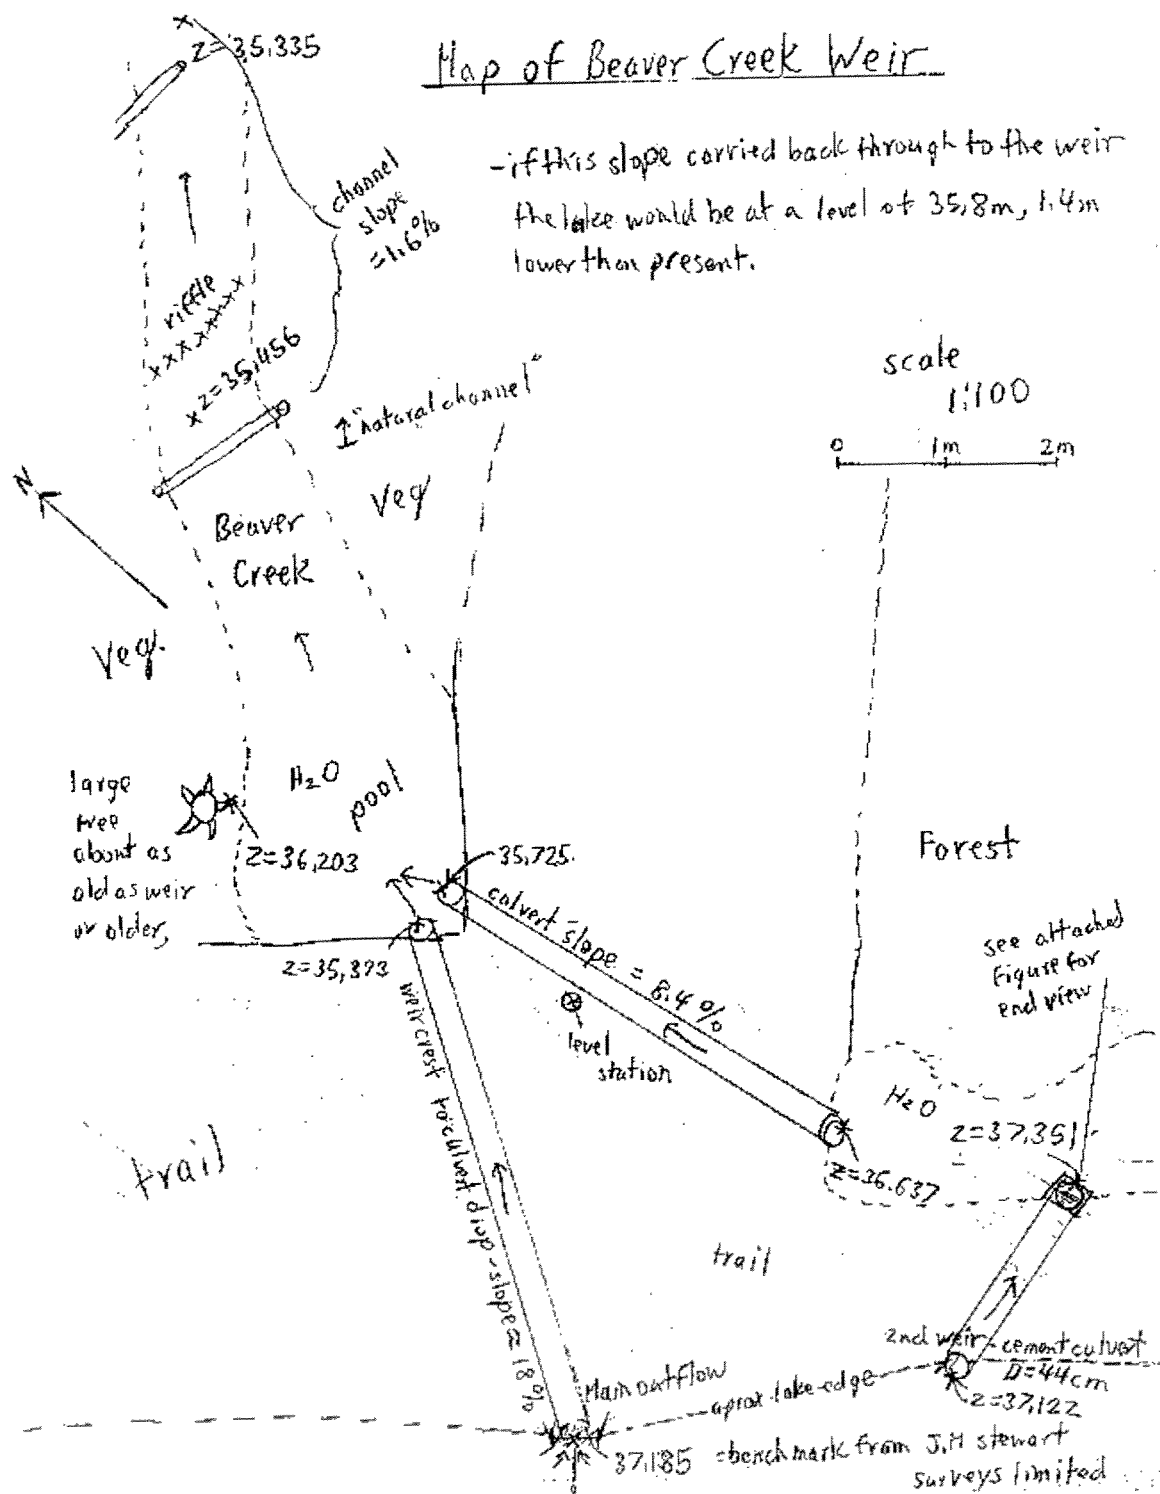 Map of Beaver Creek Weir
z=35,335
-if this slope carried back through to the weir
the lake would be at a level of 35,8m, 1.4m
lower than present.
channel
slope
=1.6%
riffle
z=35,456
"natural channel"
scale
1:100
0 1m 2m
N
Veg
Beaver
Creek
Veg.
H2O
pool
large
tree
about as
old as weir
or older,
z=36,203
35,725.
z=35,373
culvert slope = 8.4%
level
station
Forest
see attached
Figure for
end view
H2O
z=37,351
z=36.637
weir crest to culvert drop-slope≈18%
trail
trail
2nd weir-cement culvert
D=44cm
z=37,122
Main outflow
aprox lake edge
37,185 =benchmark from J.H stewart
surveys limited